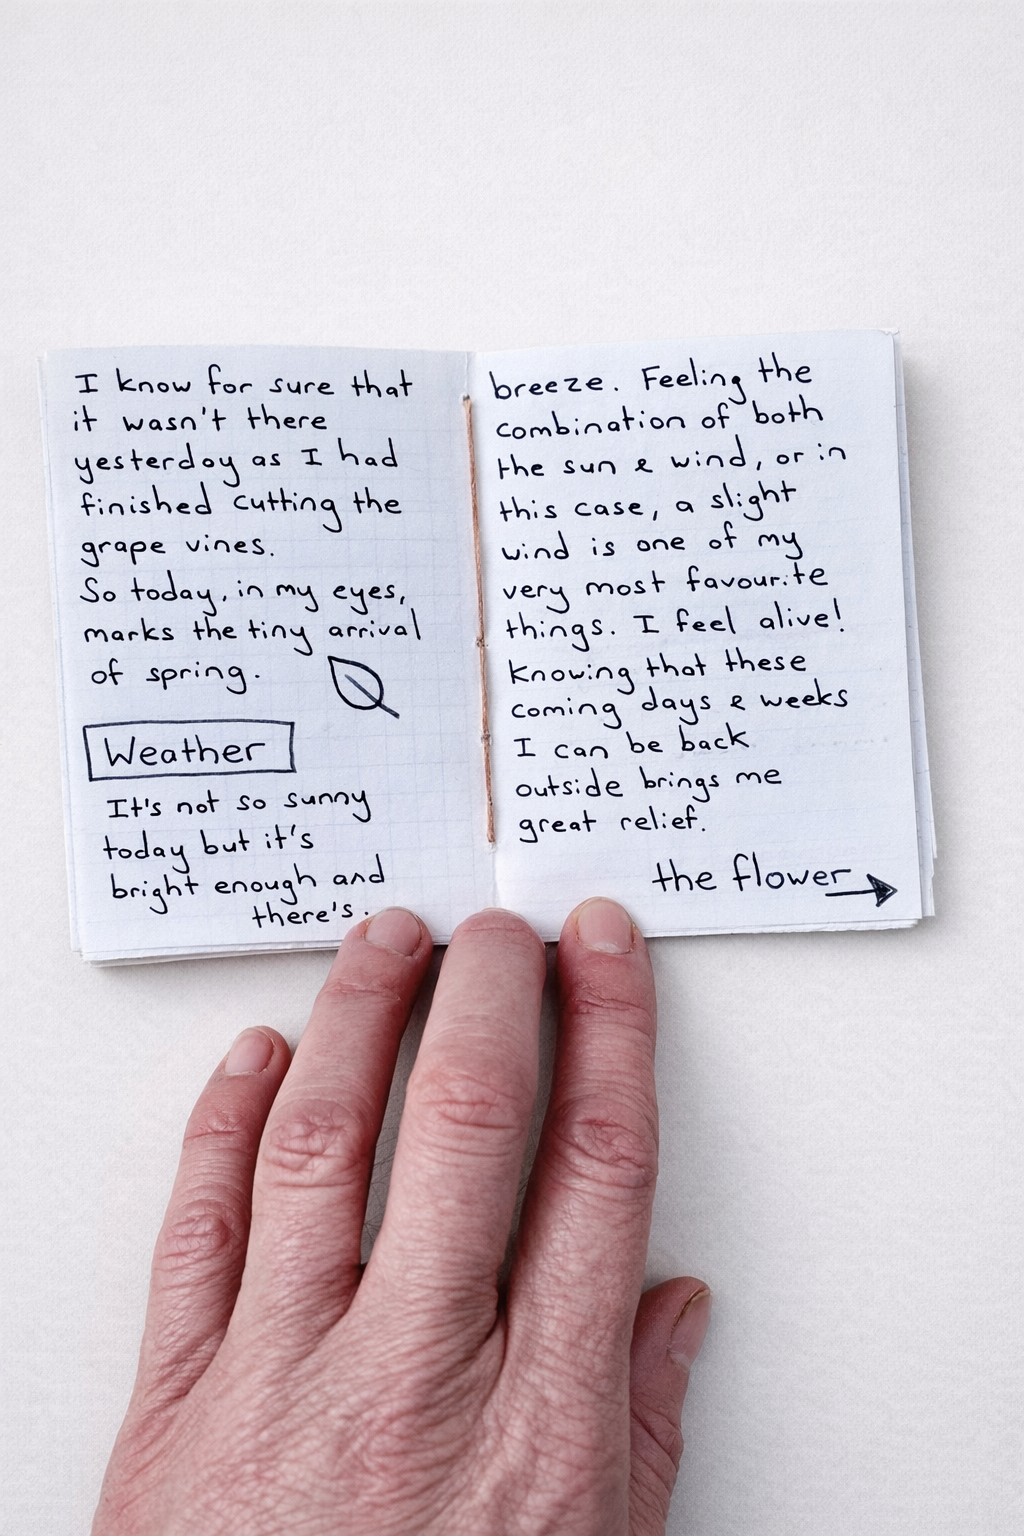 I know for sure that
it wasn't there
yesterday as I had
finished cutting the
grape vines.
So today, in my eyes,
marks the tiny arrival
of spring.
Weather
It's not so sunny
today but it's
bright enough and
there's.
breeze. Feeling the
combination of both
the sun & wind, or in
this case, a slight
wind is one of my
very most favourite
things. I feel alive!
Knowing that these
coming days & weeks
I can be back
outside brings me
great relief.
the flower